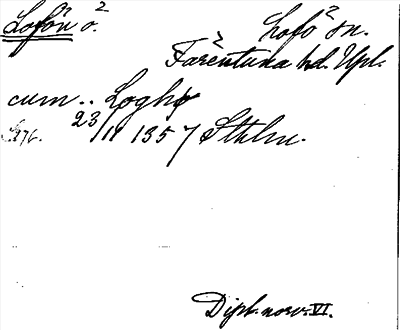 Lofön ö.² Lofö² sn.
Färentuna hd. Upl.
cum .. Loghø
23/11 1357 Sthlm.
Dipl. norv. VI.